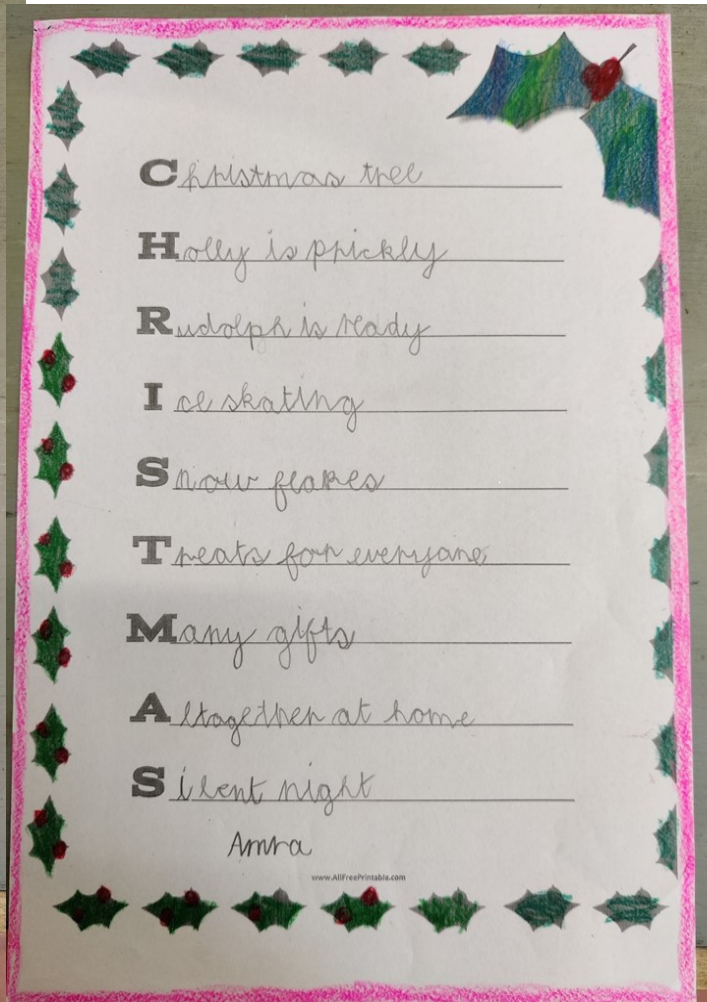 Christmas tree
Holly is prickly
Rudolph is ready
Ice skating
Snow flakes
Treats for everyone
Many gifts
Altogether at home
Silent night
Amra
www.AllFreePrintable.com